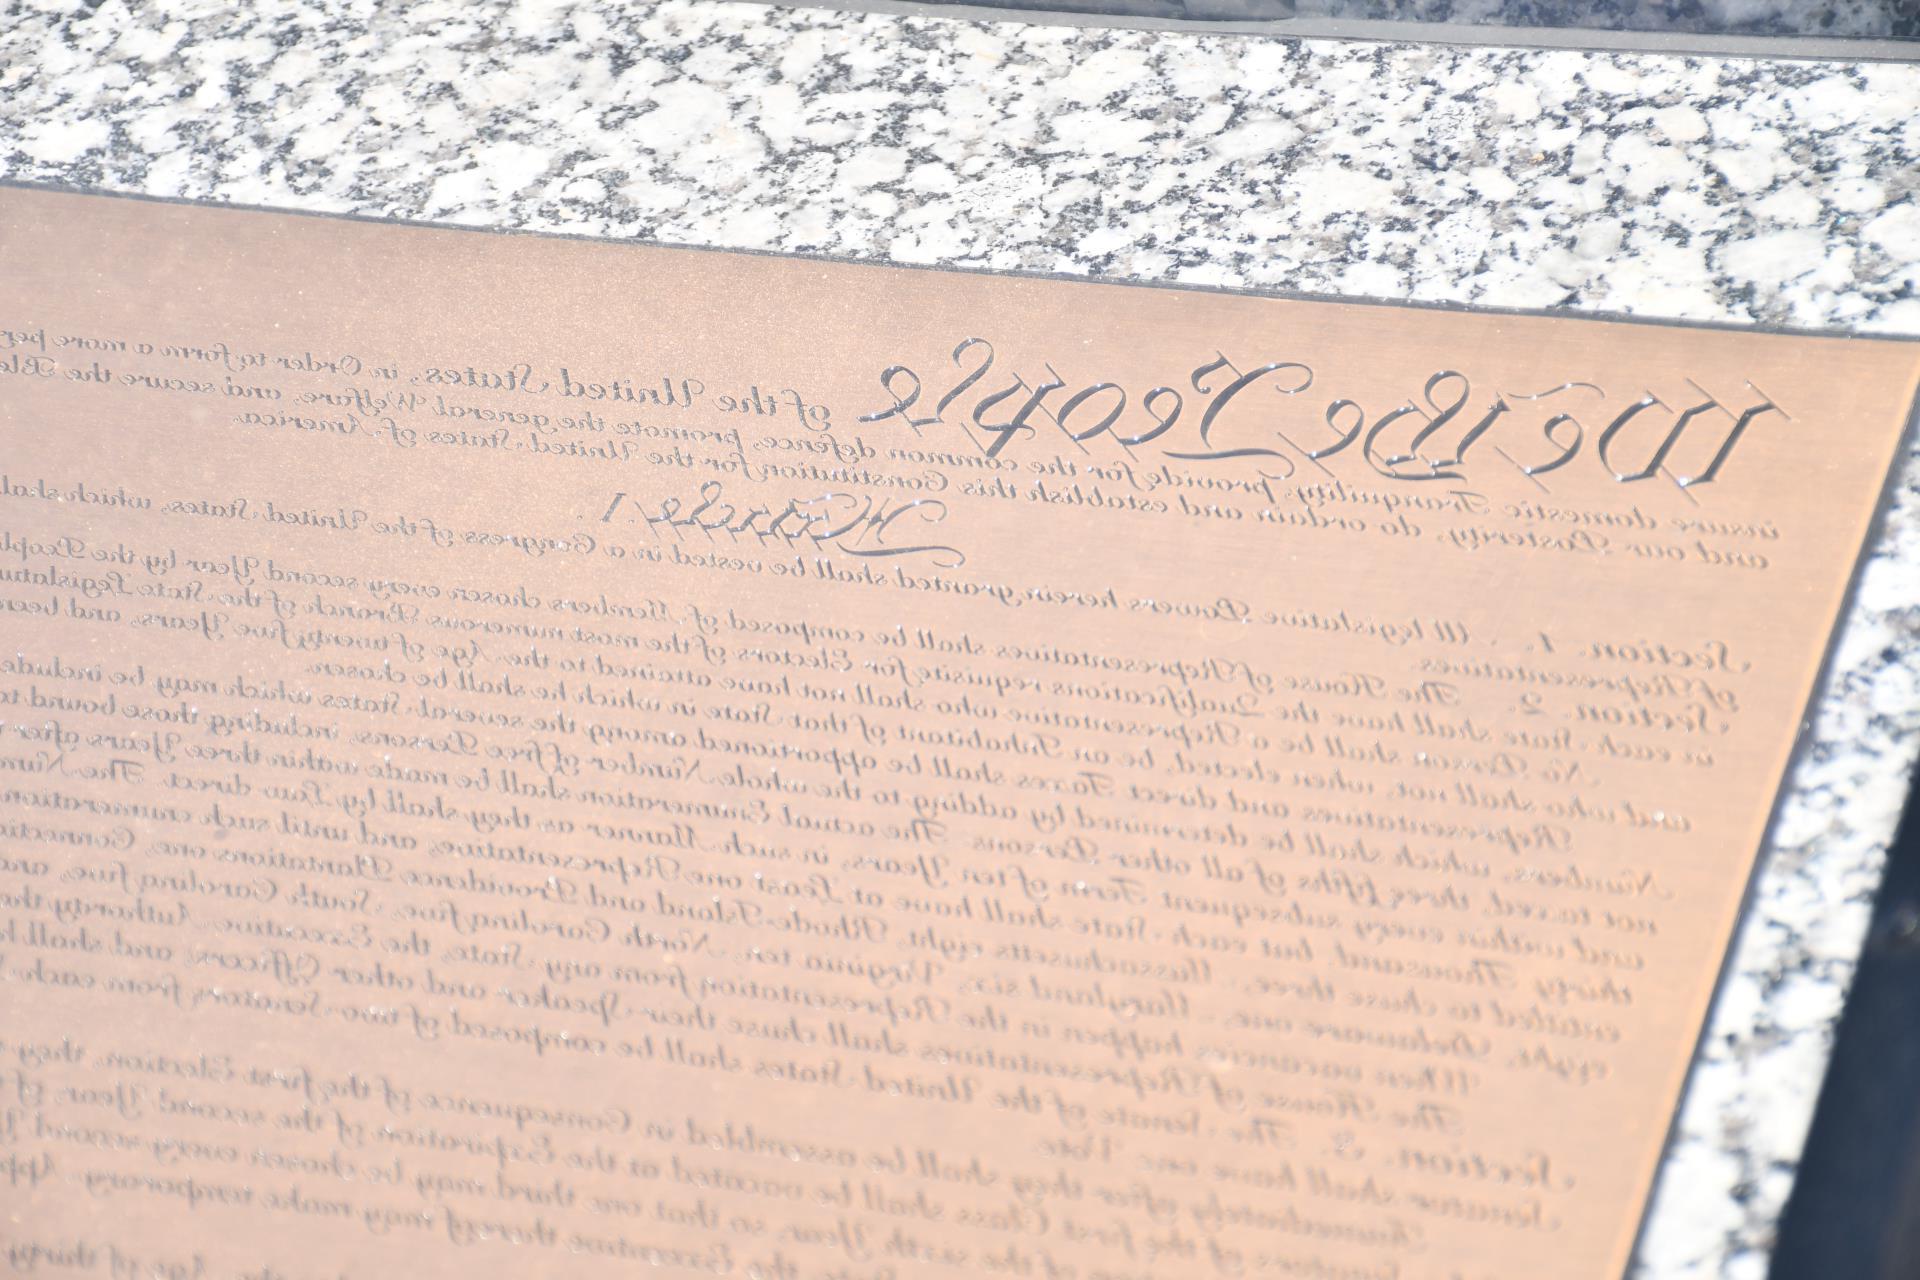 We the People of the United States, in Order to form a more per
insure domestic Tranquility, provide for the common defence, promote the general Welfare, and secure the Ble
and our Posterity, do ordain and establish this Constitution for the United States of America.
Article. I.
Section. 1. All legislative Powers herein granted shall be vested in a Congress of the United States, which shall
of Representatives.
Section. 2. The House of Representatives shall be composed of Members chosen every second Year by the People
in each State shall have the Qualifications requisite for Electors of the most numerous Branch of the State Legislatur
No Person shall be a Representative who shall not have attained to the Age of twenty five Years, and been
and who shall not, when elected, be an Inhabitant of that State in which he shall be chosen.
Representatives and direct Taxes shall be apportioned among the several States which may be include
Numbers, which shall be determined by adding to the whole Number of free Persons, including those bound to
not taxed, three fifths of all other Persons. The actual Enumeration shall be made within three Years after
and within every subsequent Term of ten Years, in such Manner as they shall by Law direct. The Num
thirty Thousand, but each State shall have at Least one Representative; and until such enumeration
entitled to chuse three, Massachusetts eight, Rhode-Island and Providence Plantations one, Connectic
eight, Delaware one, Maryland six, Virginia ten, North Carolina five, South Carolina five, and
When vacancies happen in the Representation from any State, the Executive Authority the
The House of Representatives shall chuse their Speaker and other Officers; and shall h
Section. 3. The Senate of the United States shall be composed of two Senators from each
Senator shall have one Vote.
Immediately after they shall be assembled in Consequence of the first Election, they
Senators of the first Class shall be vacated at the Expiration of the second Year, of
of the sixth Year, so that one third may be chosen every second Y
State, the Executive thereof may make temporary App
the Age of thirty